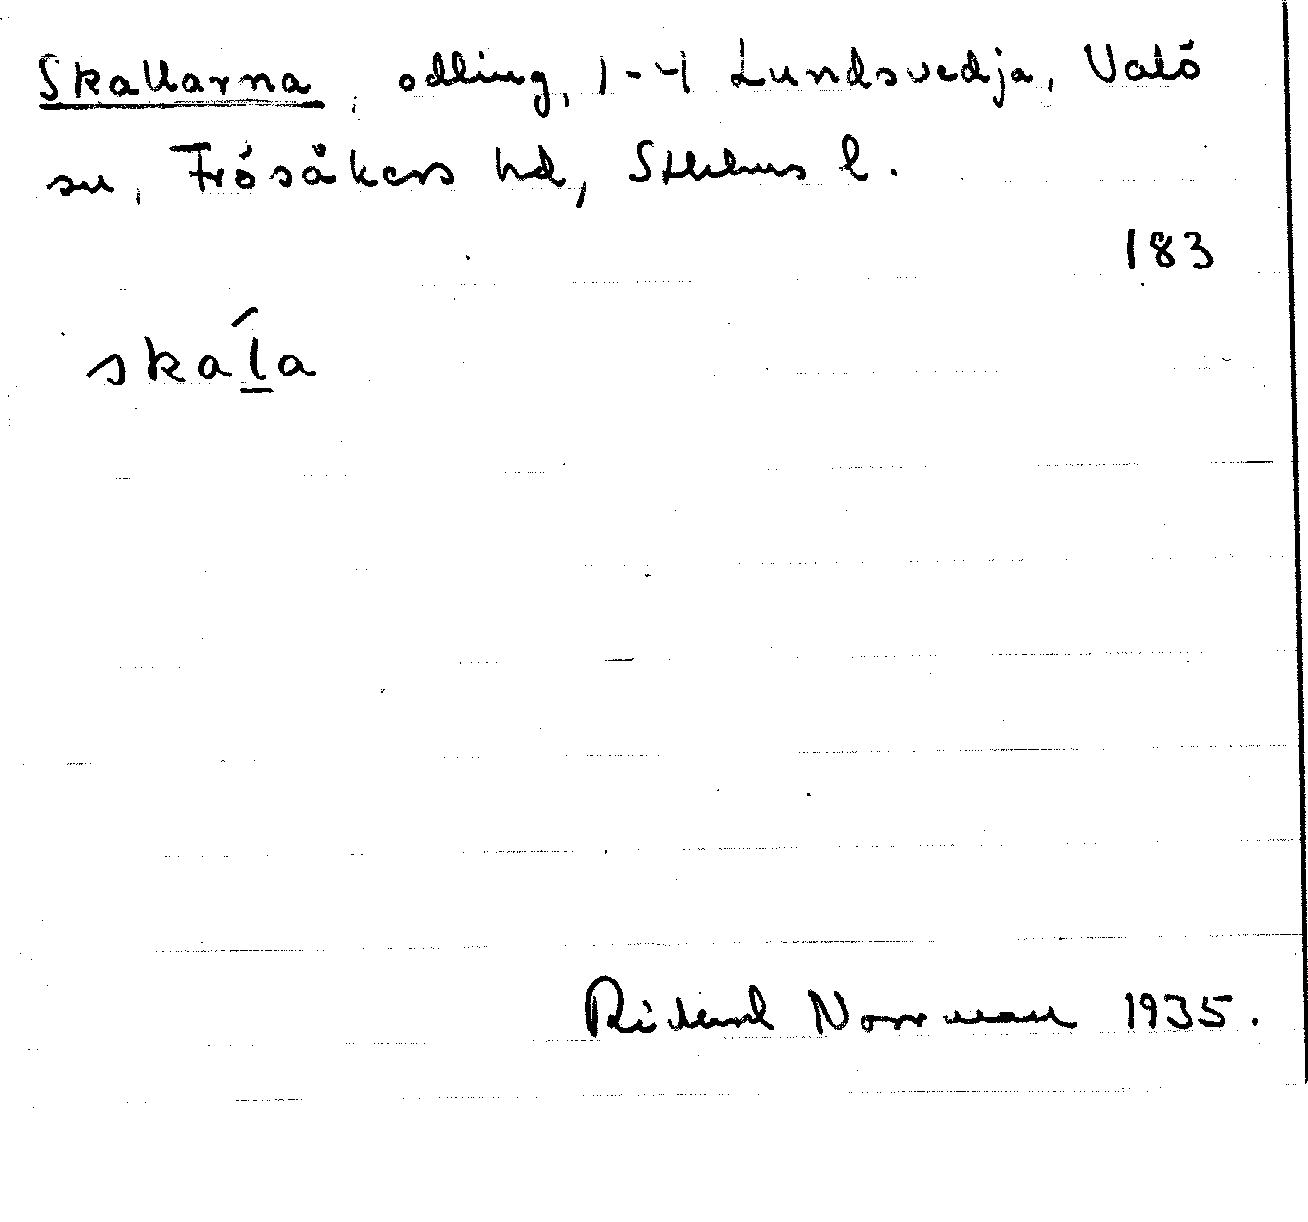 Skallarna, odling, 1-4 Lundsvedja, Valö
sn, Frösåkers hd, Sthlms l.
183
ska´l̲a
Rickard Norrman 1935.